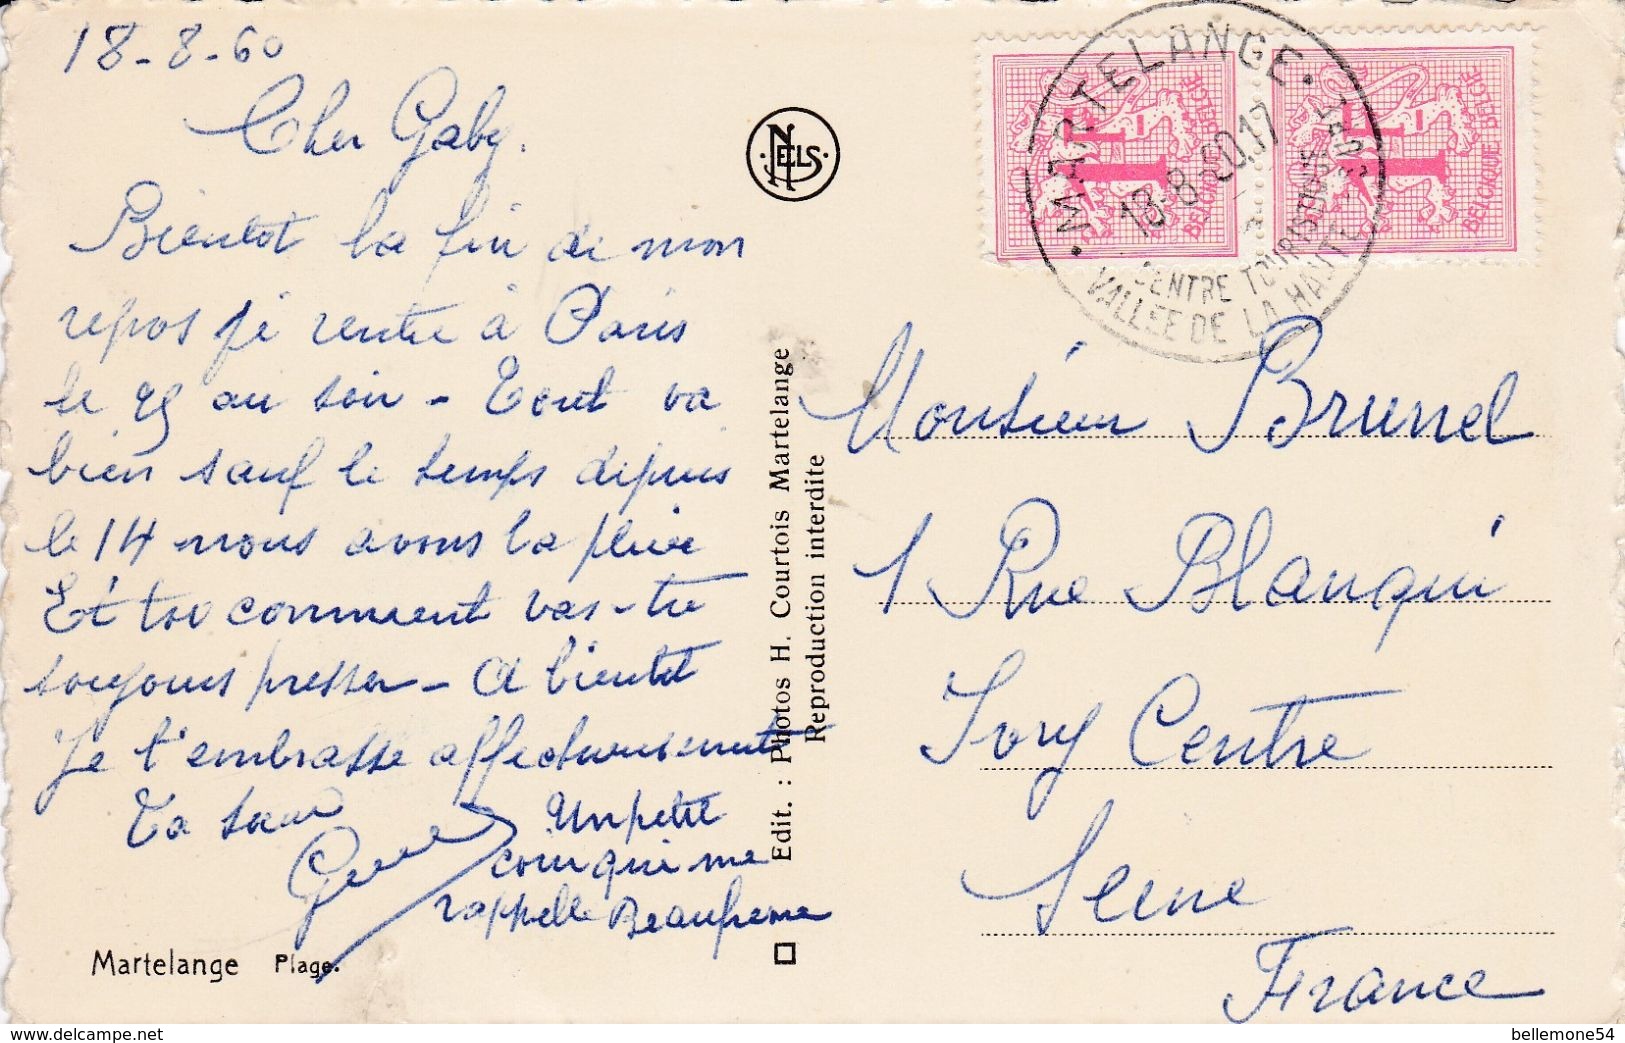 18-8-60
Cher Gaby.
Bientot la fin de mon
repos je rentre à Paris
le 25 au soir - Tout va
bien sauf le temps depuis
le 14 nous avons la pluie
Et toi comment vas-tu
toujours presser - A bientot
Je t'embrasse affectueusement
Ta soeur
Un petit
coin qui me
rappelle Beaufresne
Martelange Plage.
NELS
Edit. : Photos H. Courtois Martelange
Reproduction interdite
1F BELGIQUE BELGIE
1F BELGIQUE BELGIE
MARTELANGE
18-8-60.17
CENTRE TOURISTIQUE
VALLEE DE LA HAUTE SURE
Monsieur Brunel
1 Rue Blanqui
Ivry Centre
Seine
France
bellemone54